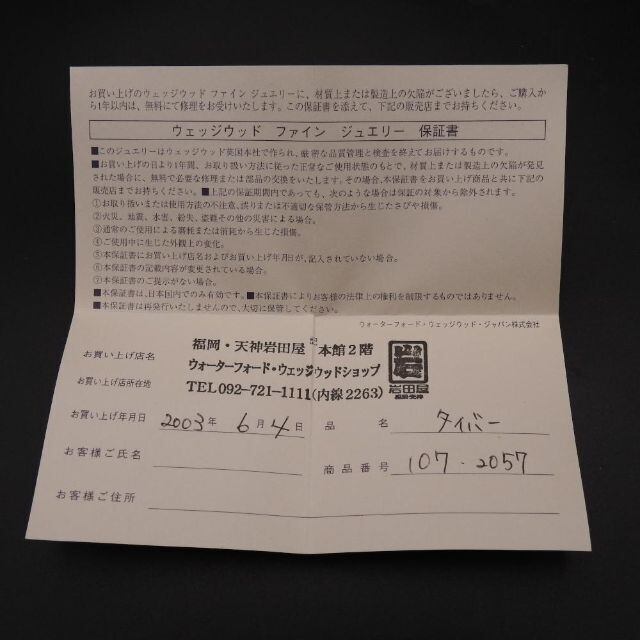 お買い上げのウェッジウッド ファイン ジュエリーに、材質上または製造上の欠陥がございましたら、ご購入か
ら1年以内は、無料にて修理をお受けいたします。この保証書を添えて、下記の販売店までお持ちください。
ウェッジウッド ファイン ジュエリー 保証書
■このジュエリーはウェッジウッド英国本社で作られ、厳密な品質管理と検査を終えてお届けするものです。
■お買い上げの日より1年間、お取り扱い方法に従った正常なご使用状態のもとで、材質上または製造上の欠陥が発見
された場合に、無料で必要な修理または部品の交換をいたします。その場合、本保証書をお買い上げ商品と共に下記の
販売店までお持ちください。■上記の保証期間内であっても、次のような場合は保証の対象から除外されます。
①お取り扱いまたは使用方法の不注意、誤りまたは不適切な保管方法から生じたさびや損傷。
②火災、地震、水害、紛失、盗難その他の災害による場合。
③通常のご使用による磨耗または消耗から生じた損傷。
④ご使用中に生じた外観上の変化。
⑤本保証書にお買い上げ店名およびお買い上げ年月日が、記入されていない場合。
⑥本保証書の記載内容が変更されている場合。
⑦本保証書のご提示がない場合。
■本保証書は、日本国内でのみ有効です。■本保証書によりお客様の法律上の権利を制限するものではありません。
■本保証書は再発行いたしませんので、大切に保管してください。
ウォーターフォード・ウェッジウッド・ジャパン株式会社
お買い上げ店名 福岡・天神岩田屋 本館2階
ウォーターフォード・ウェッジウッドショップ
お買い上げ店所在地 TEL092-721-1111(内線2263)
岩田屋
お買い上げ年月日 2003年 6月4日 品名 タイバー
お客様ご氏名 商品番号 107-2057
お客様ご住所